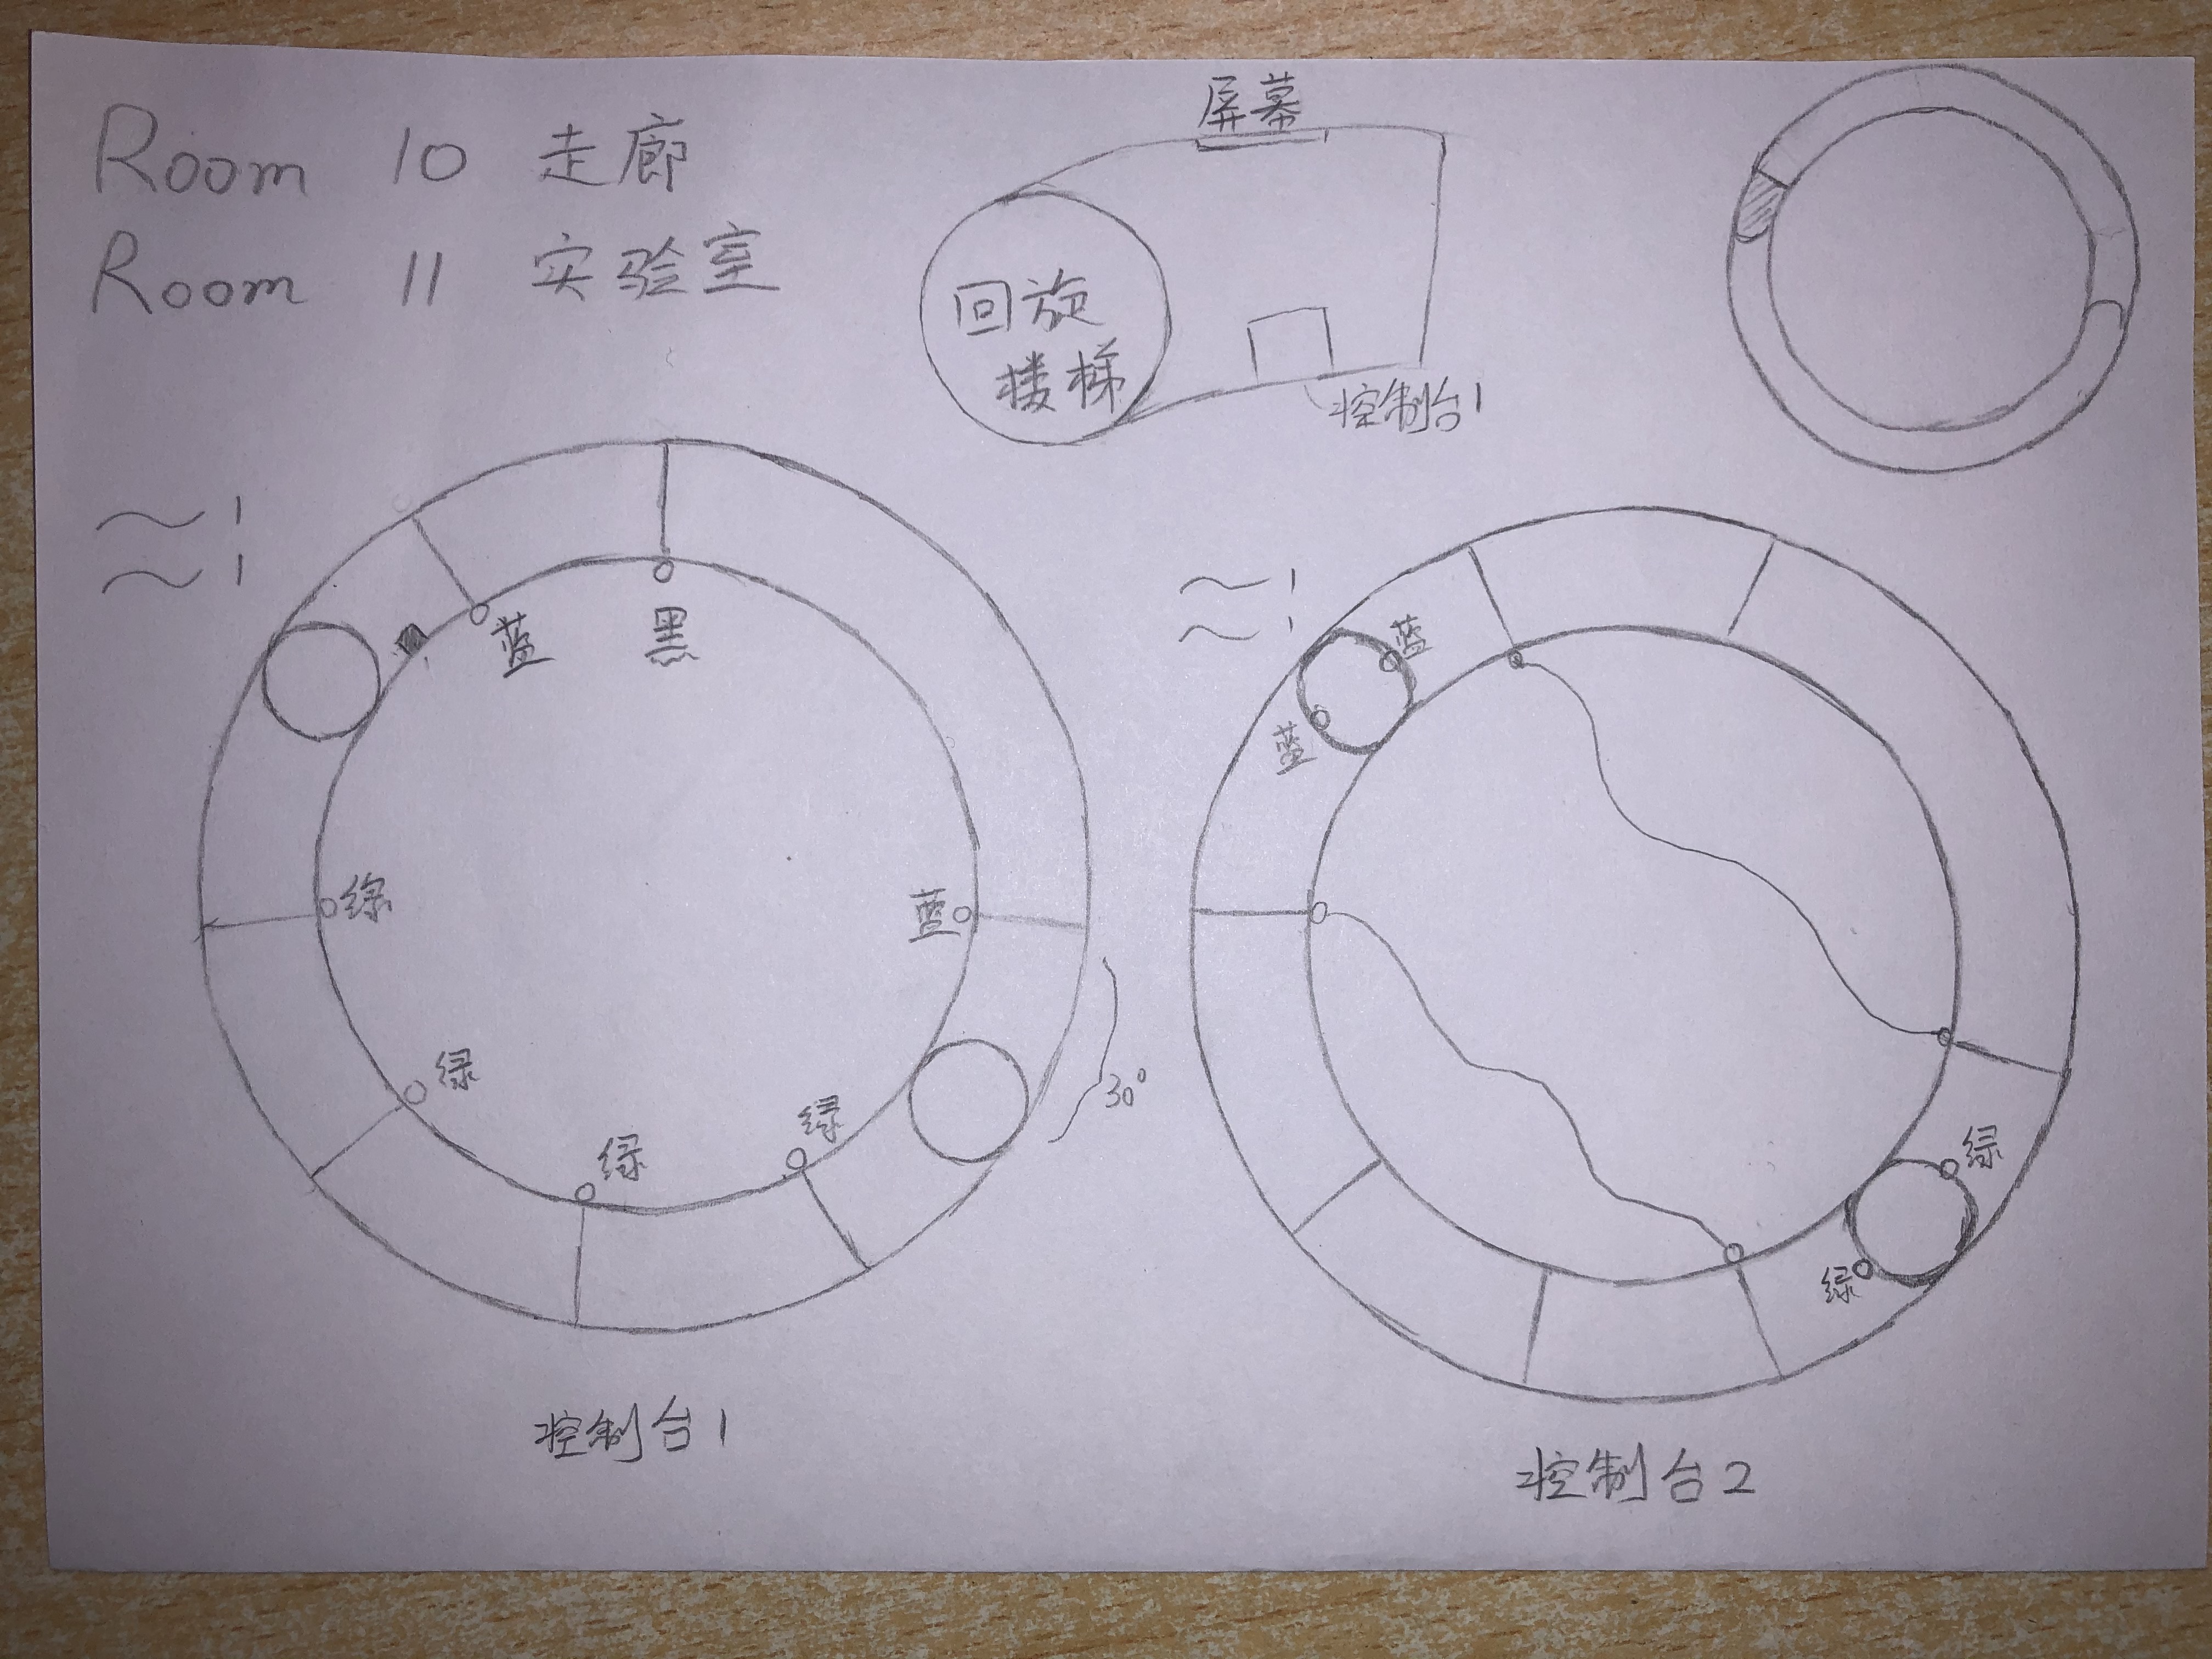 Room 10 走廊
Room 11 实验室
屏幕
回旋
楼梯
控制台1
蓝
黑
绿
蓝
绿
绿
绿
30°
控制台1
蓝
蓝
绿
绿
控制台2